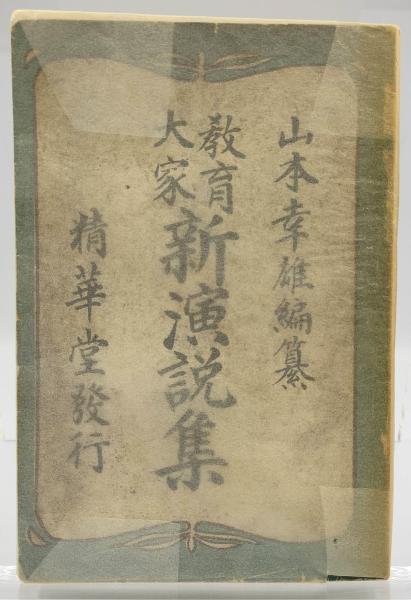 山本幸雄編纂
教育大家新演説集
精華堂發行